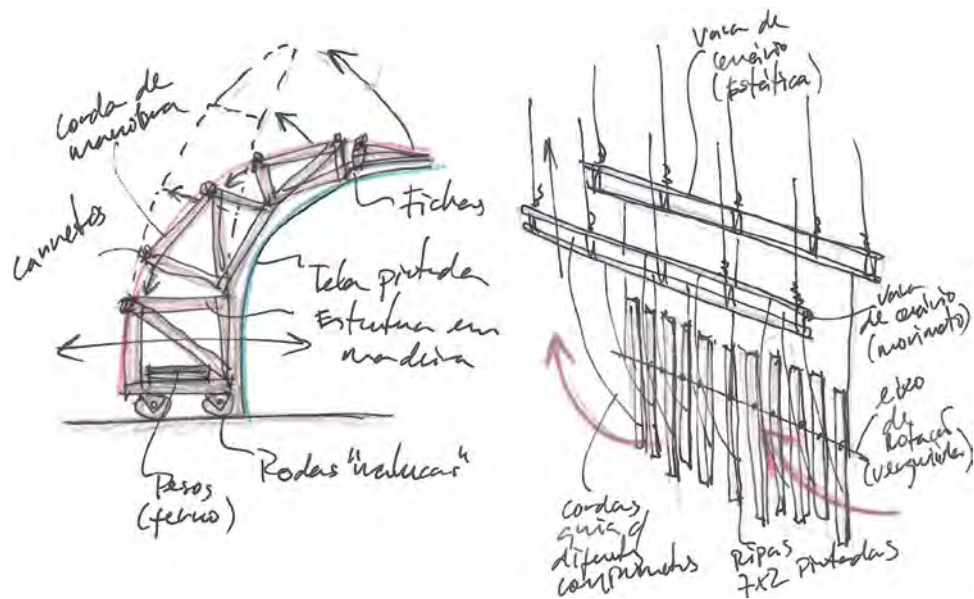 corda de
manobra
carretos
Fichas
Tela pintada
Estrutura em
madeira
Pesos
(ferro)
Rodas "malucas"
vara de
cenário
(estática)
vara
de cenário
(movimento)
eixo
de
rotação
cordas
guia d
diferentes
comprimentos
Ripas
7x2 pintadas